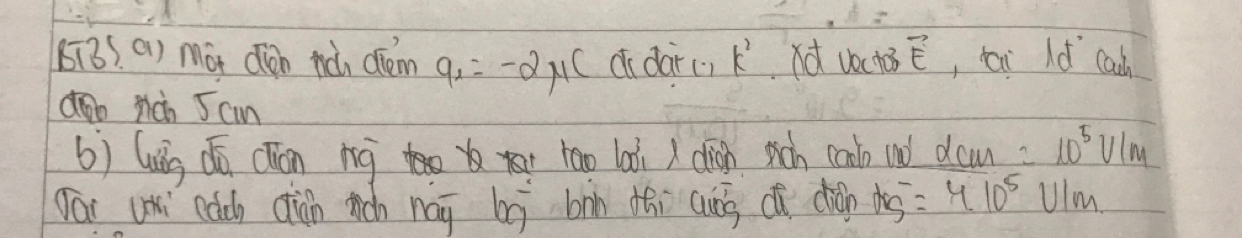 BT3). a) Một điện tích điểm q₁ = -2 μC đc đặt (.) k². Xđ vectơ E⃗, tại 1đ cách
điện tích 5cm
b) Cường độ điện trg tạo bởi 1 điện tích cách nó 2cm = 10⁵ V/m
Tại vị trí cách điện tích này bg bnh thì cường độ điện trg = 4 10⁵ V/m.